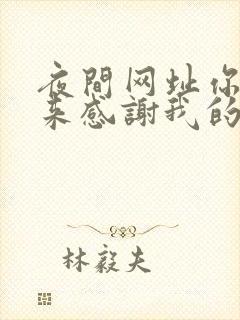 夜間网址你
来感謝我的
林毅夫